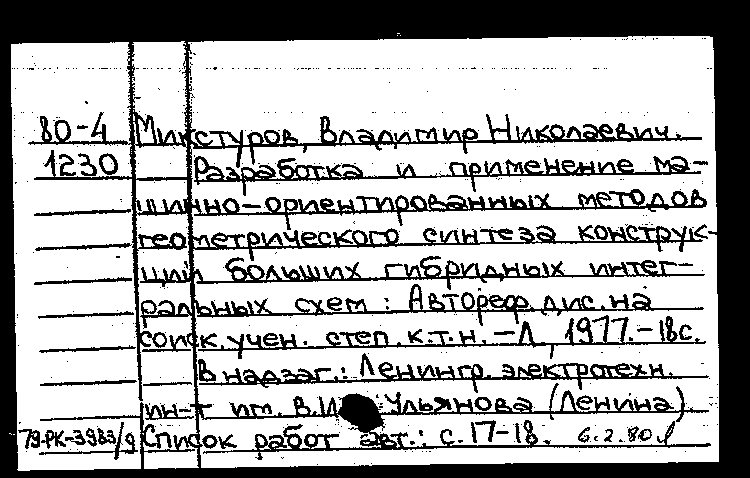 80-4 Микстуров, Владимир Николаевич.
1230 Разработка и применение ма-
шинно-ориентированных методов
геометрического синтеза конструк-
ции больших гибридных интег-
ральных схем : Автореф. дис. на
соиск. учен. степ. к.т.н. - Л, 1977. - 18 с.
В надзаг.: Ленингр. электротехн.
ин-т им. В.И. Ульянова (Ленина).
79-РК-3983/9 Список работ авт.: с. 17-18. 6.2.80